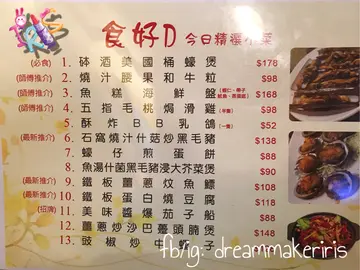 IRIS
食好D 今日精選小菜
(必食) 1. 砵酒美國桶蠔煲 $178
(師傅推介) 2. 燒汁腰果和牛粒 $118
(師傅推介) 3. 魚糕海鮮盤 $168
(師傅推介) 4. 五指毛桃焗滑雞 (半隻) $98
5. 酥炸BB乳鴿 (一隻) $52
(最新推介) 6. 石窩燒汁什菇炒黑毛豬 $138
7. 蠔仔煎蛋餅 $88
8. 魚湯什菌黑毛豬浸大芥菜煲
(最新推介) 9. 鐵板薑蔥炆魚鰾 $108
(最新推介) 10. 鐵板蛋白燒豆腐 $118
(招牌) 11. 美味醬爆茄子船 $88
12. 薑蔥炒沙巴躉頭腩煲 $148
13. 豉椒炒牛蛙
fb/ig: dreammakeriris